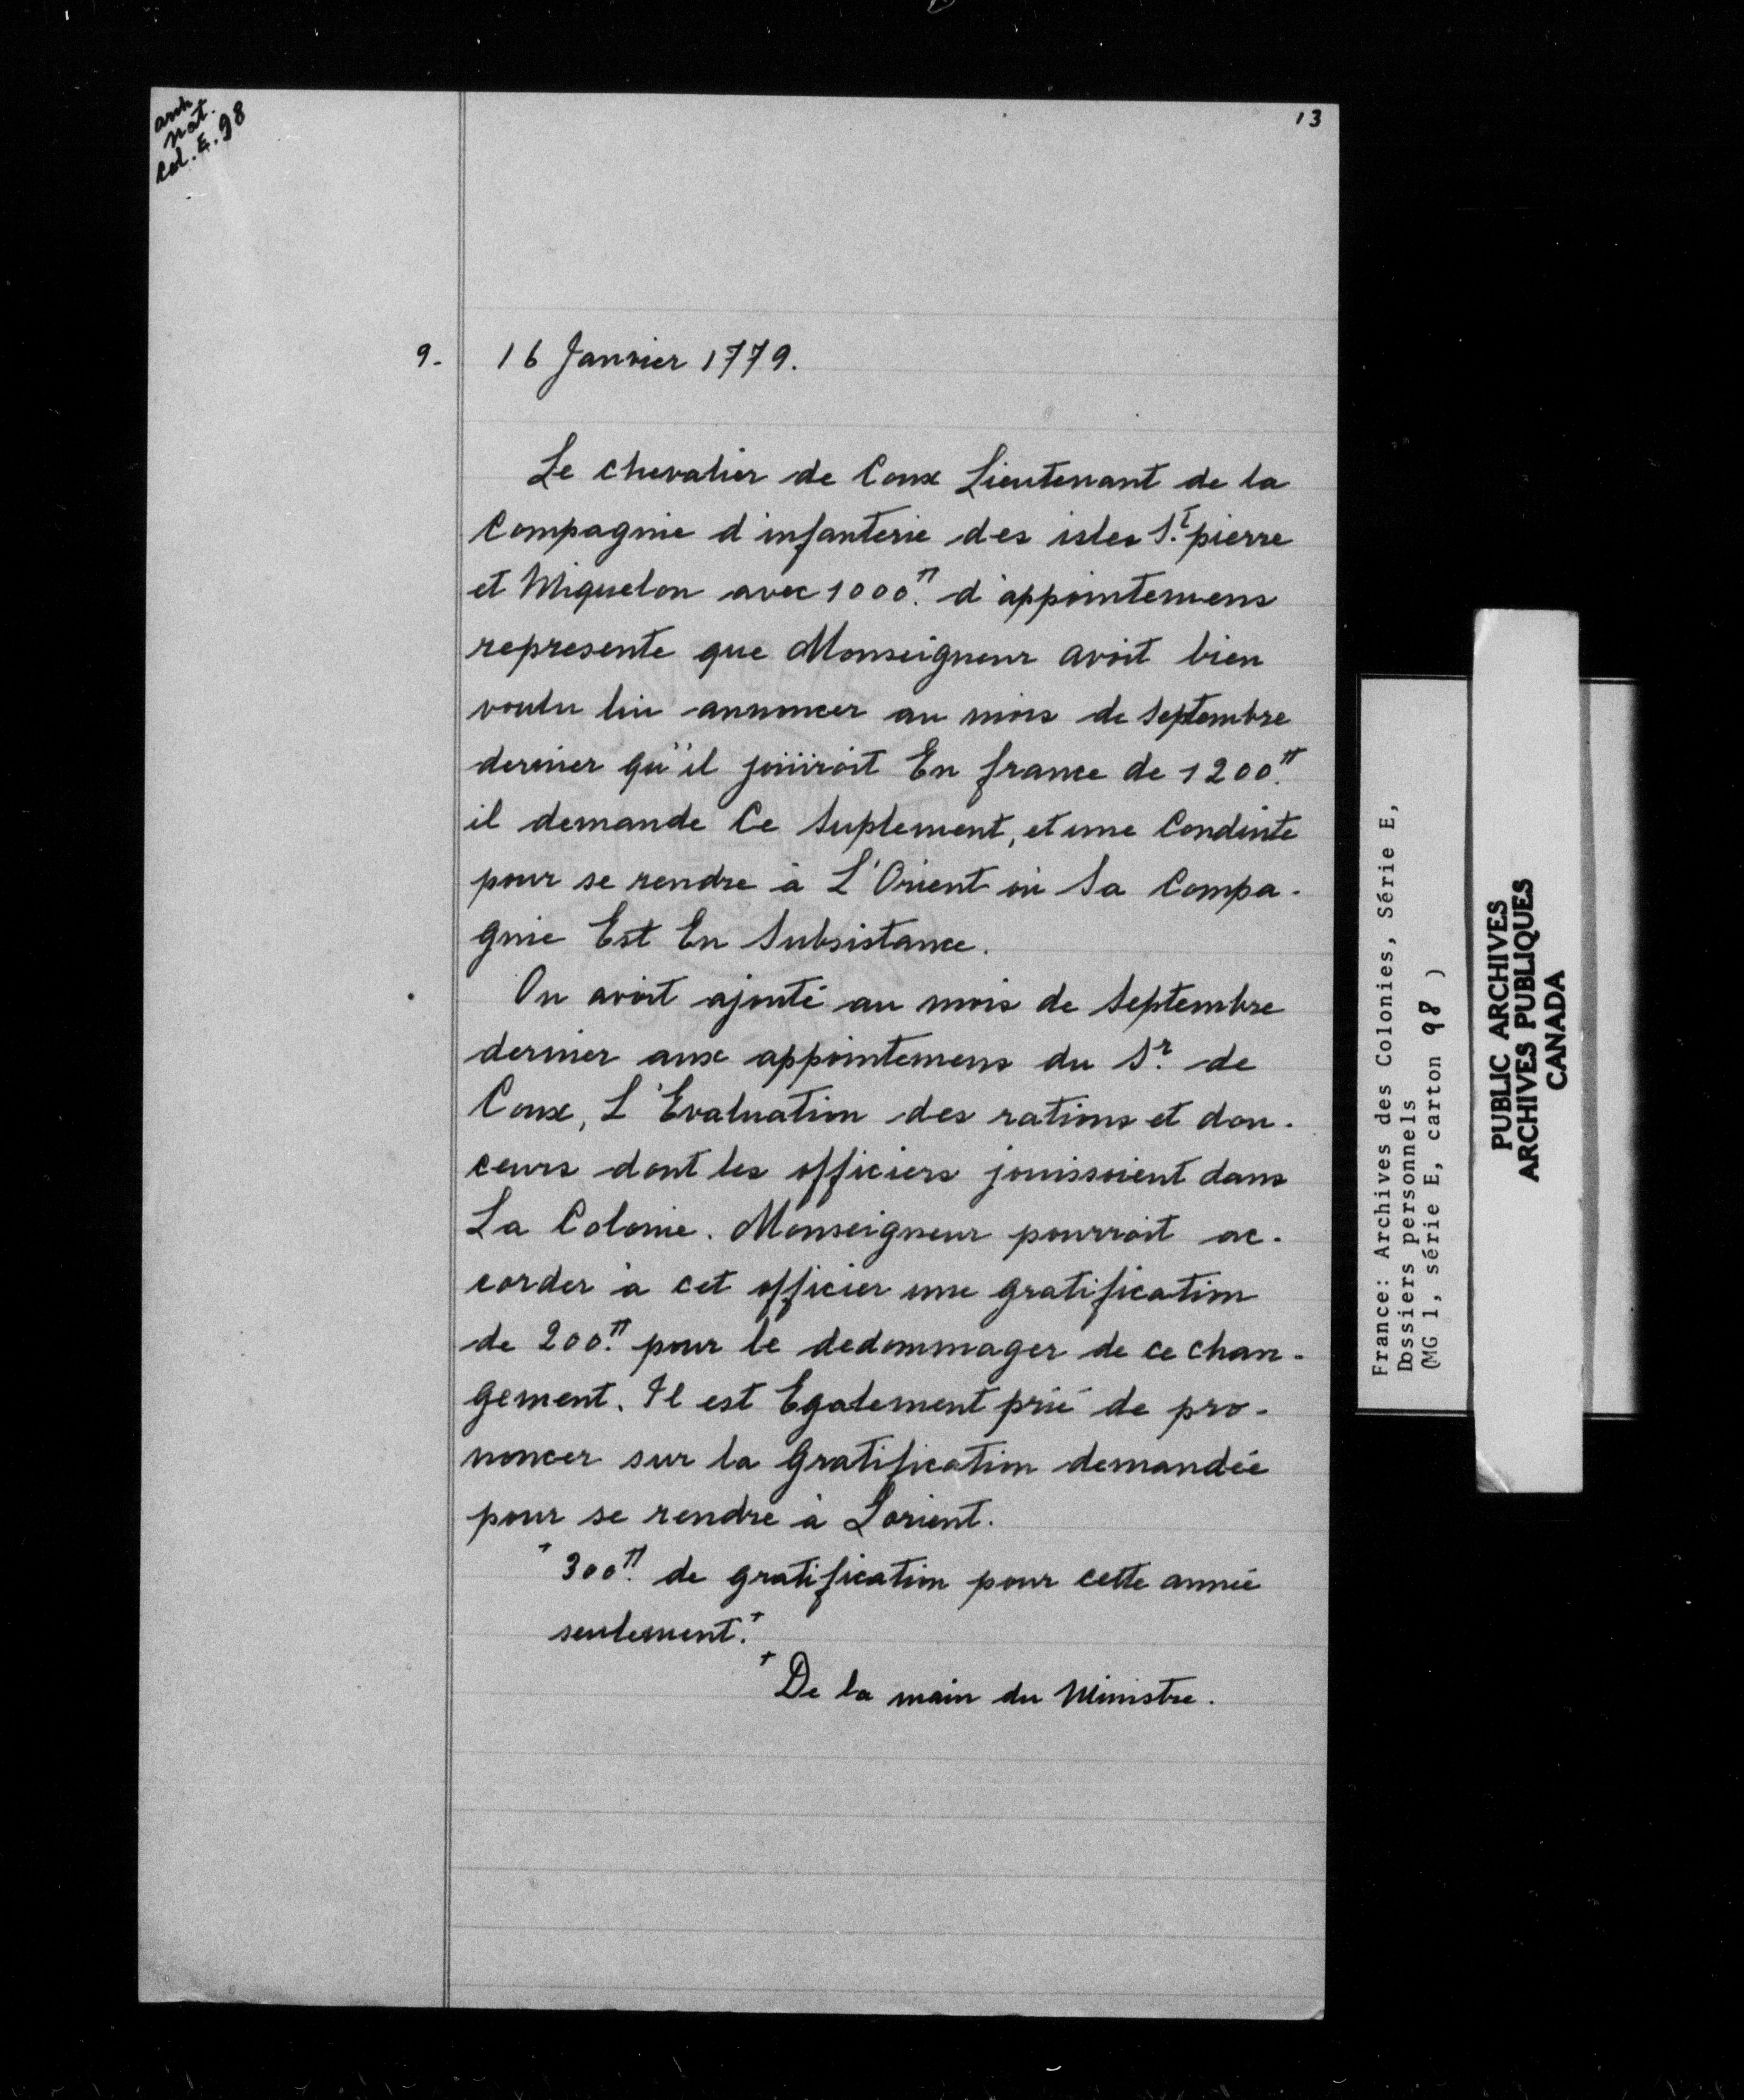 arch.
nat.
Col. E. 98
13
9.
16 Janvier 1779.
Le chevalier de Coux Lieutenant de la
Compagnie d'infanterie des isles St. pierre
et Miquelon avec 1000.tt d'appointemens
represente que Monseigneur avoit bien
voulu lui annoncer au mois de Septembre
dernier qu'il joüiroit En france de 1200.tt
il demande Ce Suplement, et une Conduite
pour se rendre à L'Orient où Sa Compa-
gnie Est En Subsistance.
On avoit ajouté au mois de Septembre
dernier aux appointemens du Sr. de
Coux, L'Evaluation des rations et dou-
ceurs dont les officiers jouissoient dans
La Colonie. Monseigneur pourroit ac-
corder à cet officier une gratification
de 200.tt pour le dedommager de ce chan-
gement. Il est Egalement prié de pro-
noncer sur la Gratification demandée
pour se rendre à Lorient.
+ 300.tt de gratification pour cette année
seulement. +
+ De la main du Ministre.
France: Archives des Colonies, Série E,
Dossiers personnels
(MG 1, série E, carton 98 )
PUBLIC ARCHIVES
ARCHIVES PUBLIQUES
CANADA